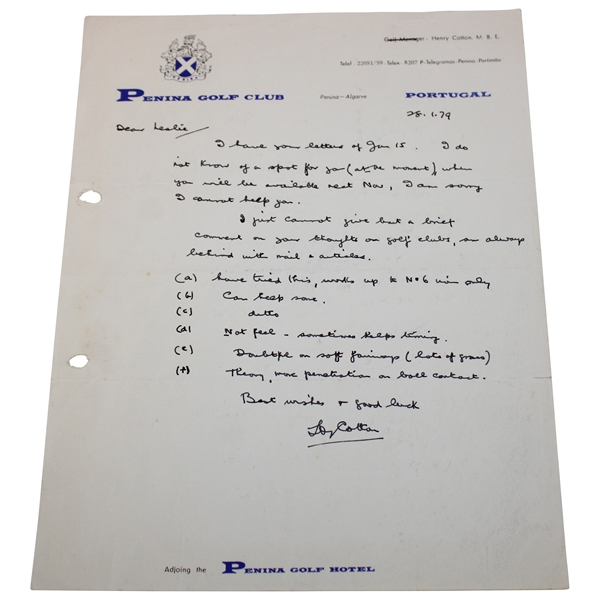 Golf Manager - Henry Cotton, M. B. E.
Telef. 22051/59 - Telex - 8207 P - Telegramas - Penina - Portimão
PENINA GOLF CLUB Penina - Algarve PORTUGAL
28.1.79
Dear Leslie
I have your letters of Jan 15. I do
not know of a spot for you (at the moment) when
you will be available next Nov, I am sorry
I cannot help you.
I just cannot give but a brief
comment on your thoughts on golf clubs, am always
behind with mail & articles.
(a) have tried this, works up to No 6 iron only
(b) Can help some.
(c) ditto
(d) Not feel - sometimes helps timing.
(e) Doubtful on soft fairways (lots of grass)
(f) Theory, more penetration on ball contact.
Best wishes & good luck
Hy Cotton
Adjoing the PENINA GOLF HOTEL